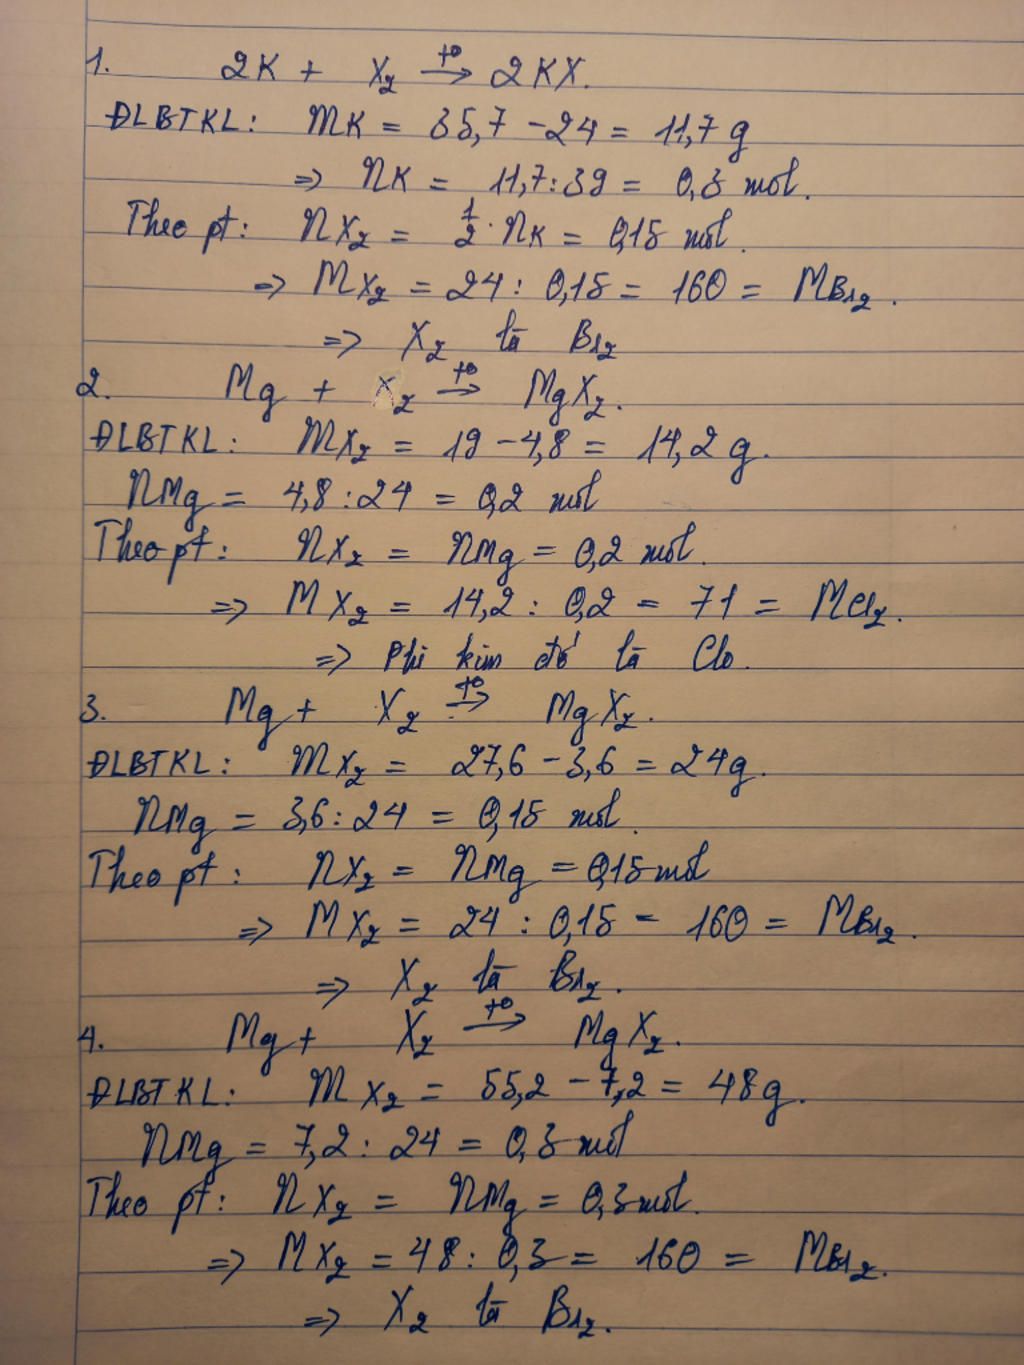 1. 2K + X₂ →(t°) 2KX.
ĐLBTKL: mK = 35,7 - 24 = 11,7 g
=> nK = 11,7 : 39 = 0,3 mol.
Theo pt: nX₂ = 1/2 . nK = 0,15 mol.
=> MX₂ = 24 : 0,15 = 160 = MBr₂.
=> X₂ là Br₂
2. Mg + X₂ →(t°) MgX₂.
ĐLBTKL: mX₂ = 19 - 4,8 = 14,2 g.
nMg = 4,8 : 24 = 0,2 mol
Theo pt: nX₂ = nMg = 0,2 mol.
=> MX₂ = 14,2 : 0,2 = 71 = MCl₂.
=> Phi kim đó là Clo.
3. Mg + X₂ →(t°) MgX₂.
ĐLBTKL: mX₂ = 27,6 - 3,6 = 24g.
nMg = 3,6 : 24 = 0,15 mol.
Theo pt: nX₂ = nMg = 0,15 mol
=> MX₂ = 24 : 0,15 = 160 = MBr₂.
=> X₂ là Br₂.
4. Mg + X₂ →(t°) MgX₂.
ĐLBTKL: mX₂ = 55,2 - 7,2 = 48g.
nMg = 7,2 : 24 = 0,3 mol
Theo pt: nX₂ = nMg = 0,3 mol.
=> MX₂ = 48 : 0,3 = 160 = MBr₂.
=> X₂ là Br₂.